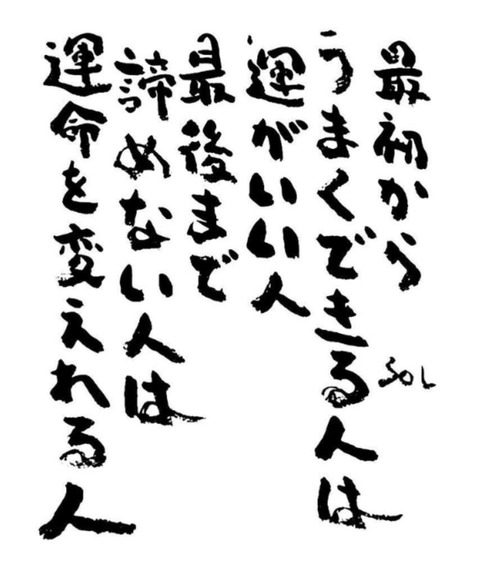 最初から
うまくできる人は
運がいい人
最後まで
諦めない人は
運命を変えれる人